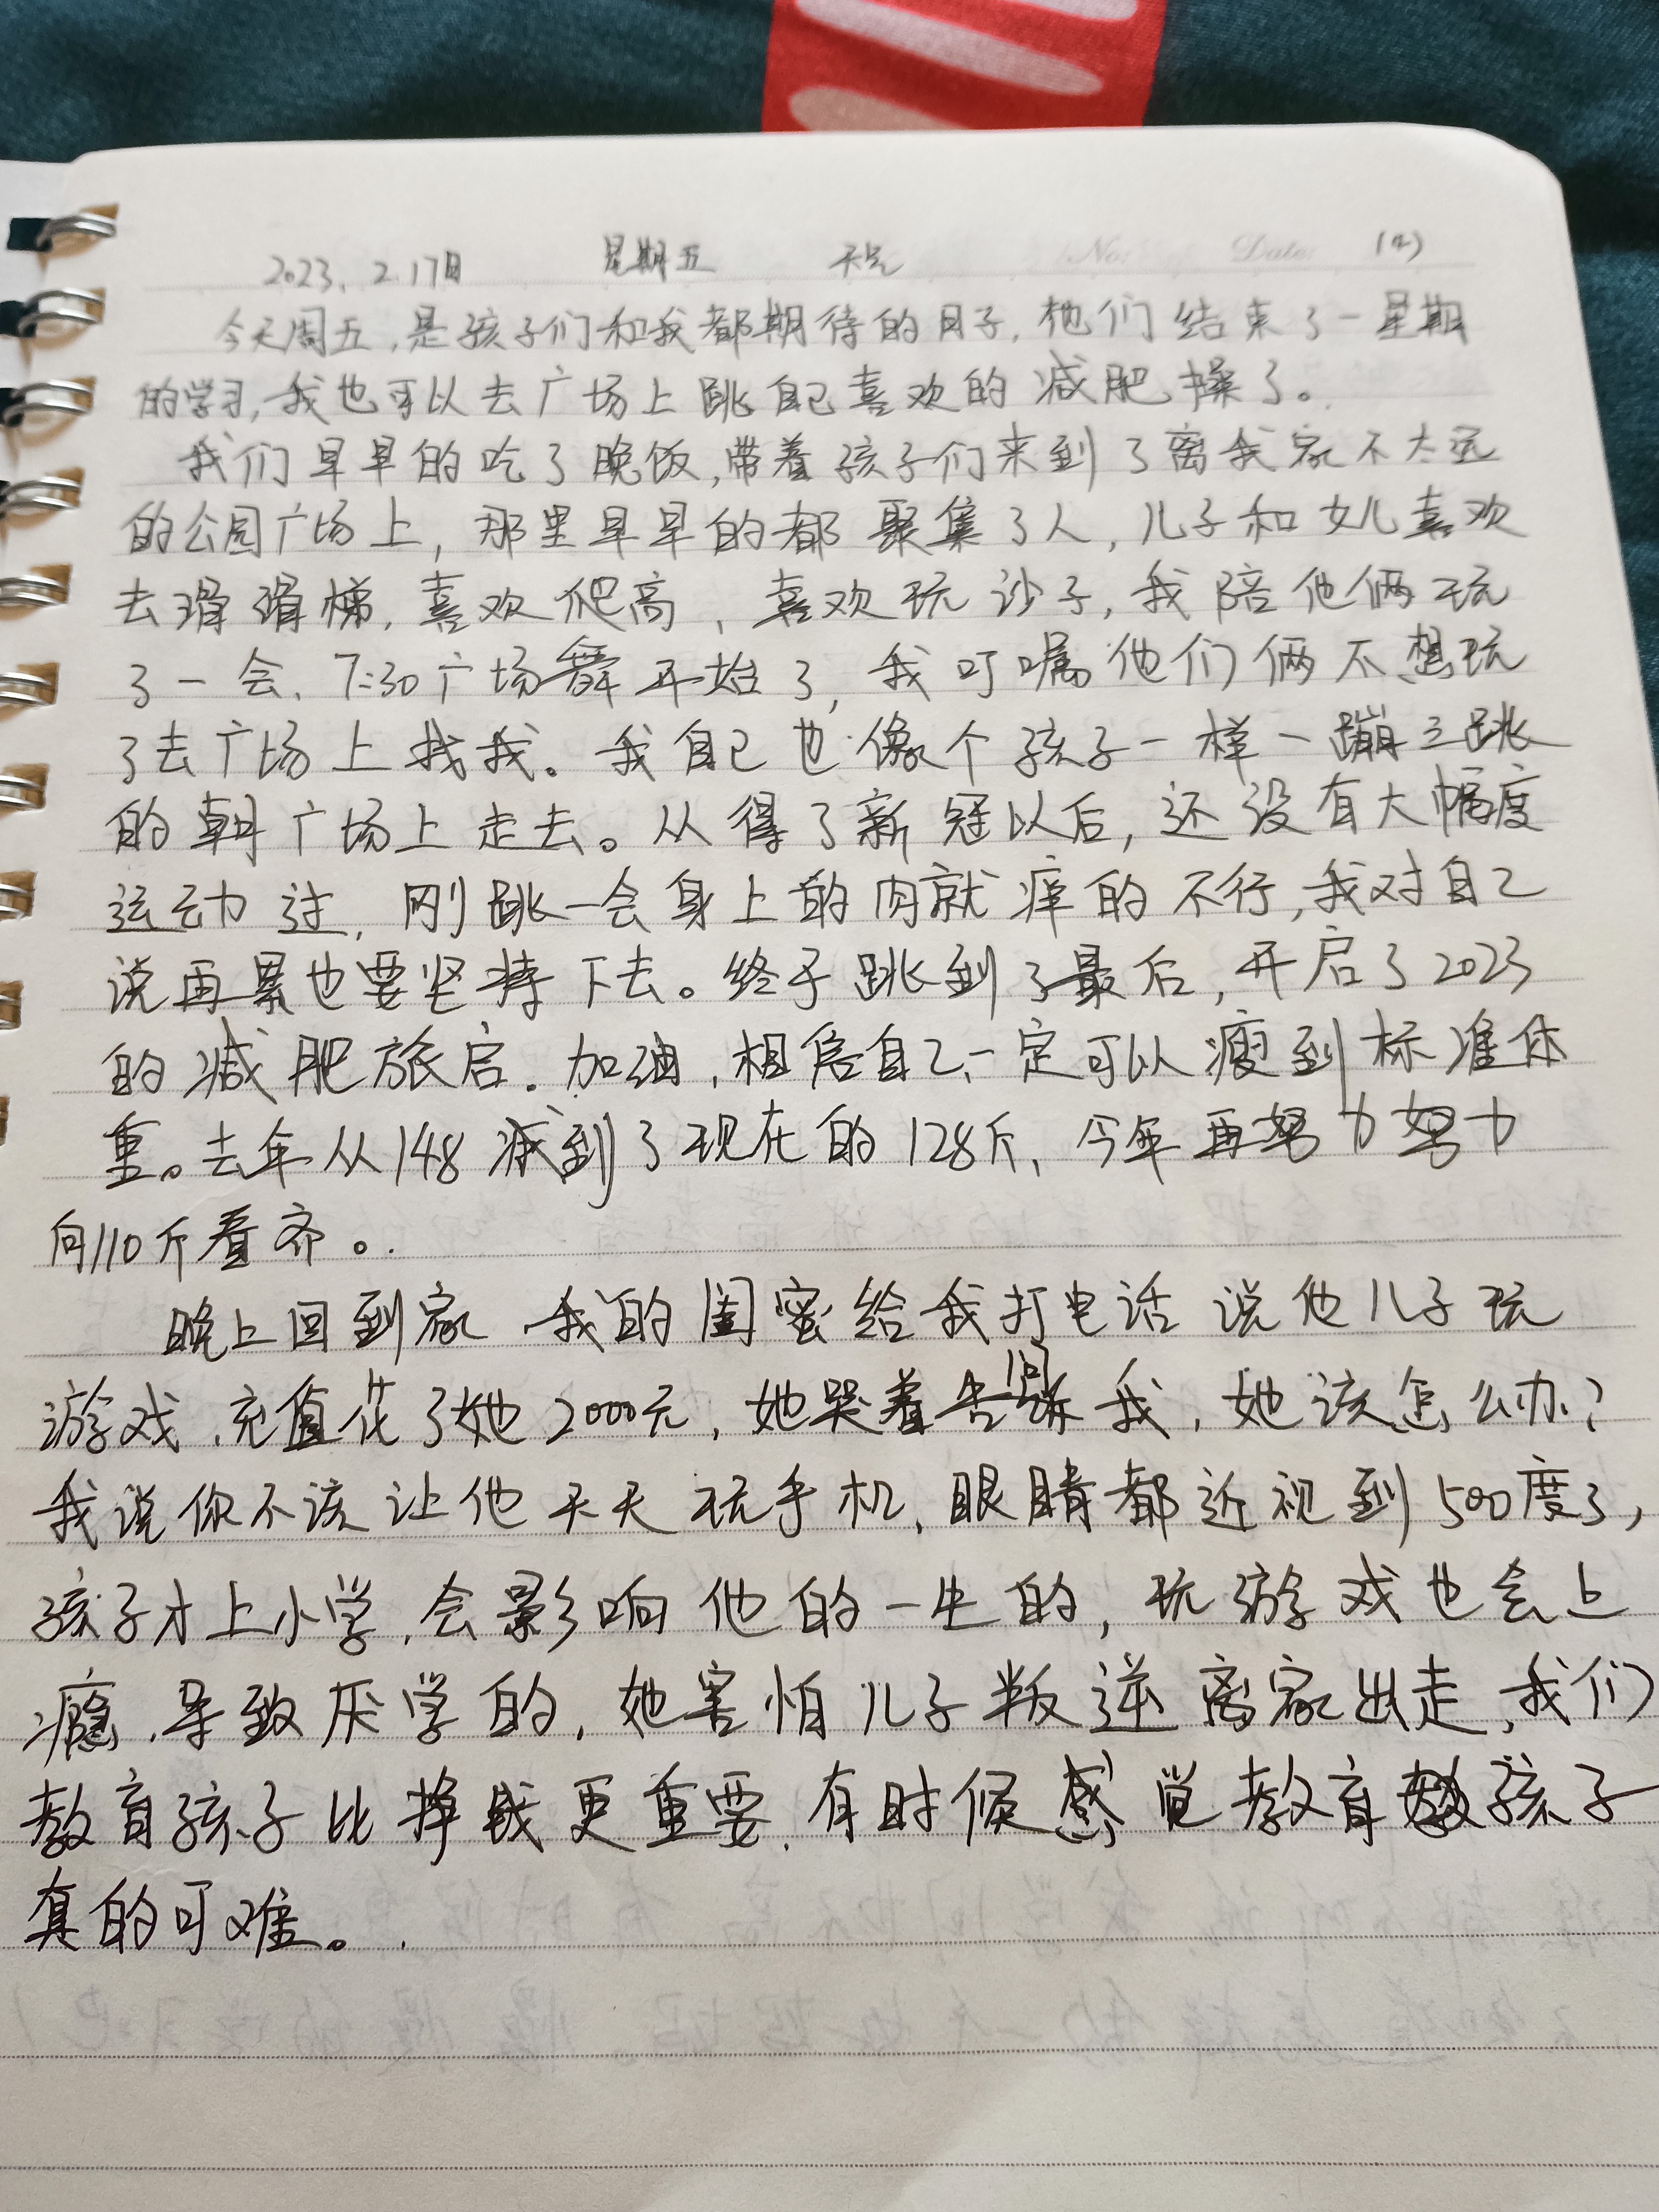 2023. 2.17日 星期五 No: Date: (4)
今天周五,是孩子们和我都期待的日子,他们结束了一星期
的学习,我也可以去广场上跳自己喜欢的减肥操了。
我们早早的吃了晚饭,带着孩子们来到了离我家不太远
的公园广场上,那里早早的都聚集了人,儿子和女儿喜欢
去滑滑梯,喜欢爬高,喜欢玩沙子,我陪他俩玩
了一会、7:30广场舞开始了,我叮嘱他们俩不想玩
了去广场上找我。我自己也像个孩子一样一蹦三跳
的朝广场上走去。从得了新冠以后,还没有大幅度
运动过,刚跳一会身上的肉就痒的不行,我对自己
说再累也要坚持下去。终于跳到了最后,开启了2023
的减肥旅启.加油,相信自己一定可以瘦到标准体
重。去年从148减到了现在的128斤、今年再努力努力
向110斤看齐。
晚上回到家、我的闺蜜给我打电话说他儿子玩
游戏、充值花了她2000元,她哭着告诉我,她该怎么办?
我说你不该让他天天玩手机,眼睛都近视到500度了,
孩子才上小学,会影响他的一生的,玩游戏也会上
瘾、导致厌学的,她害怕儿子叛逆离家出走,我们
教育孩子比挣钱更重要,有时候感觉教育孩子
真的可难。